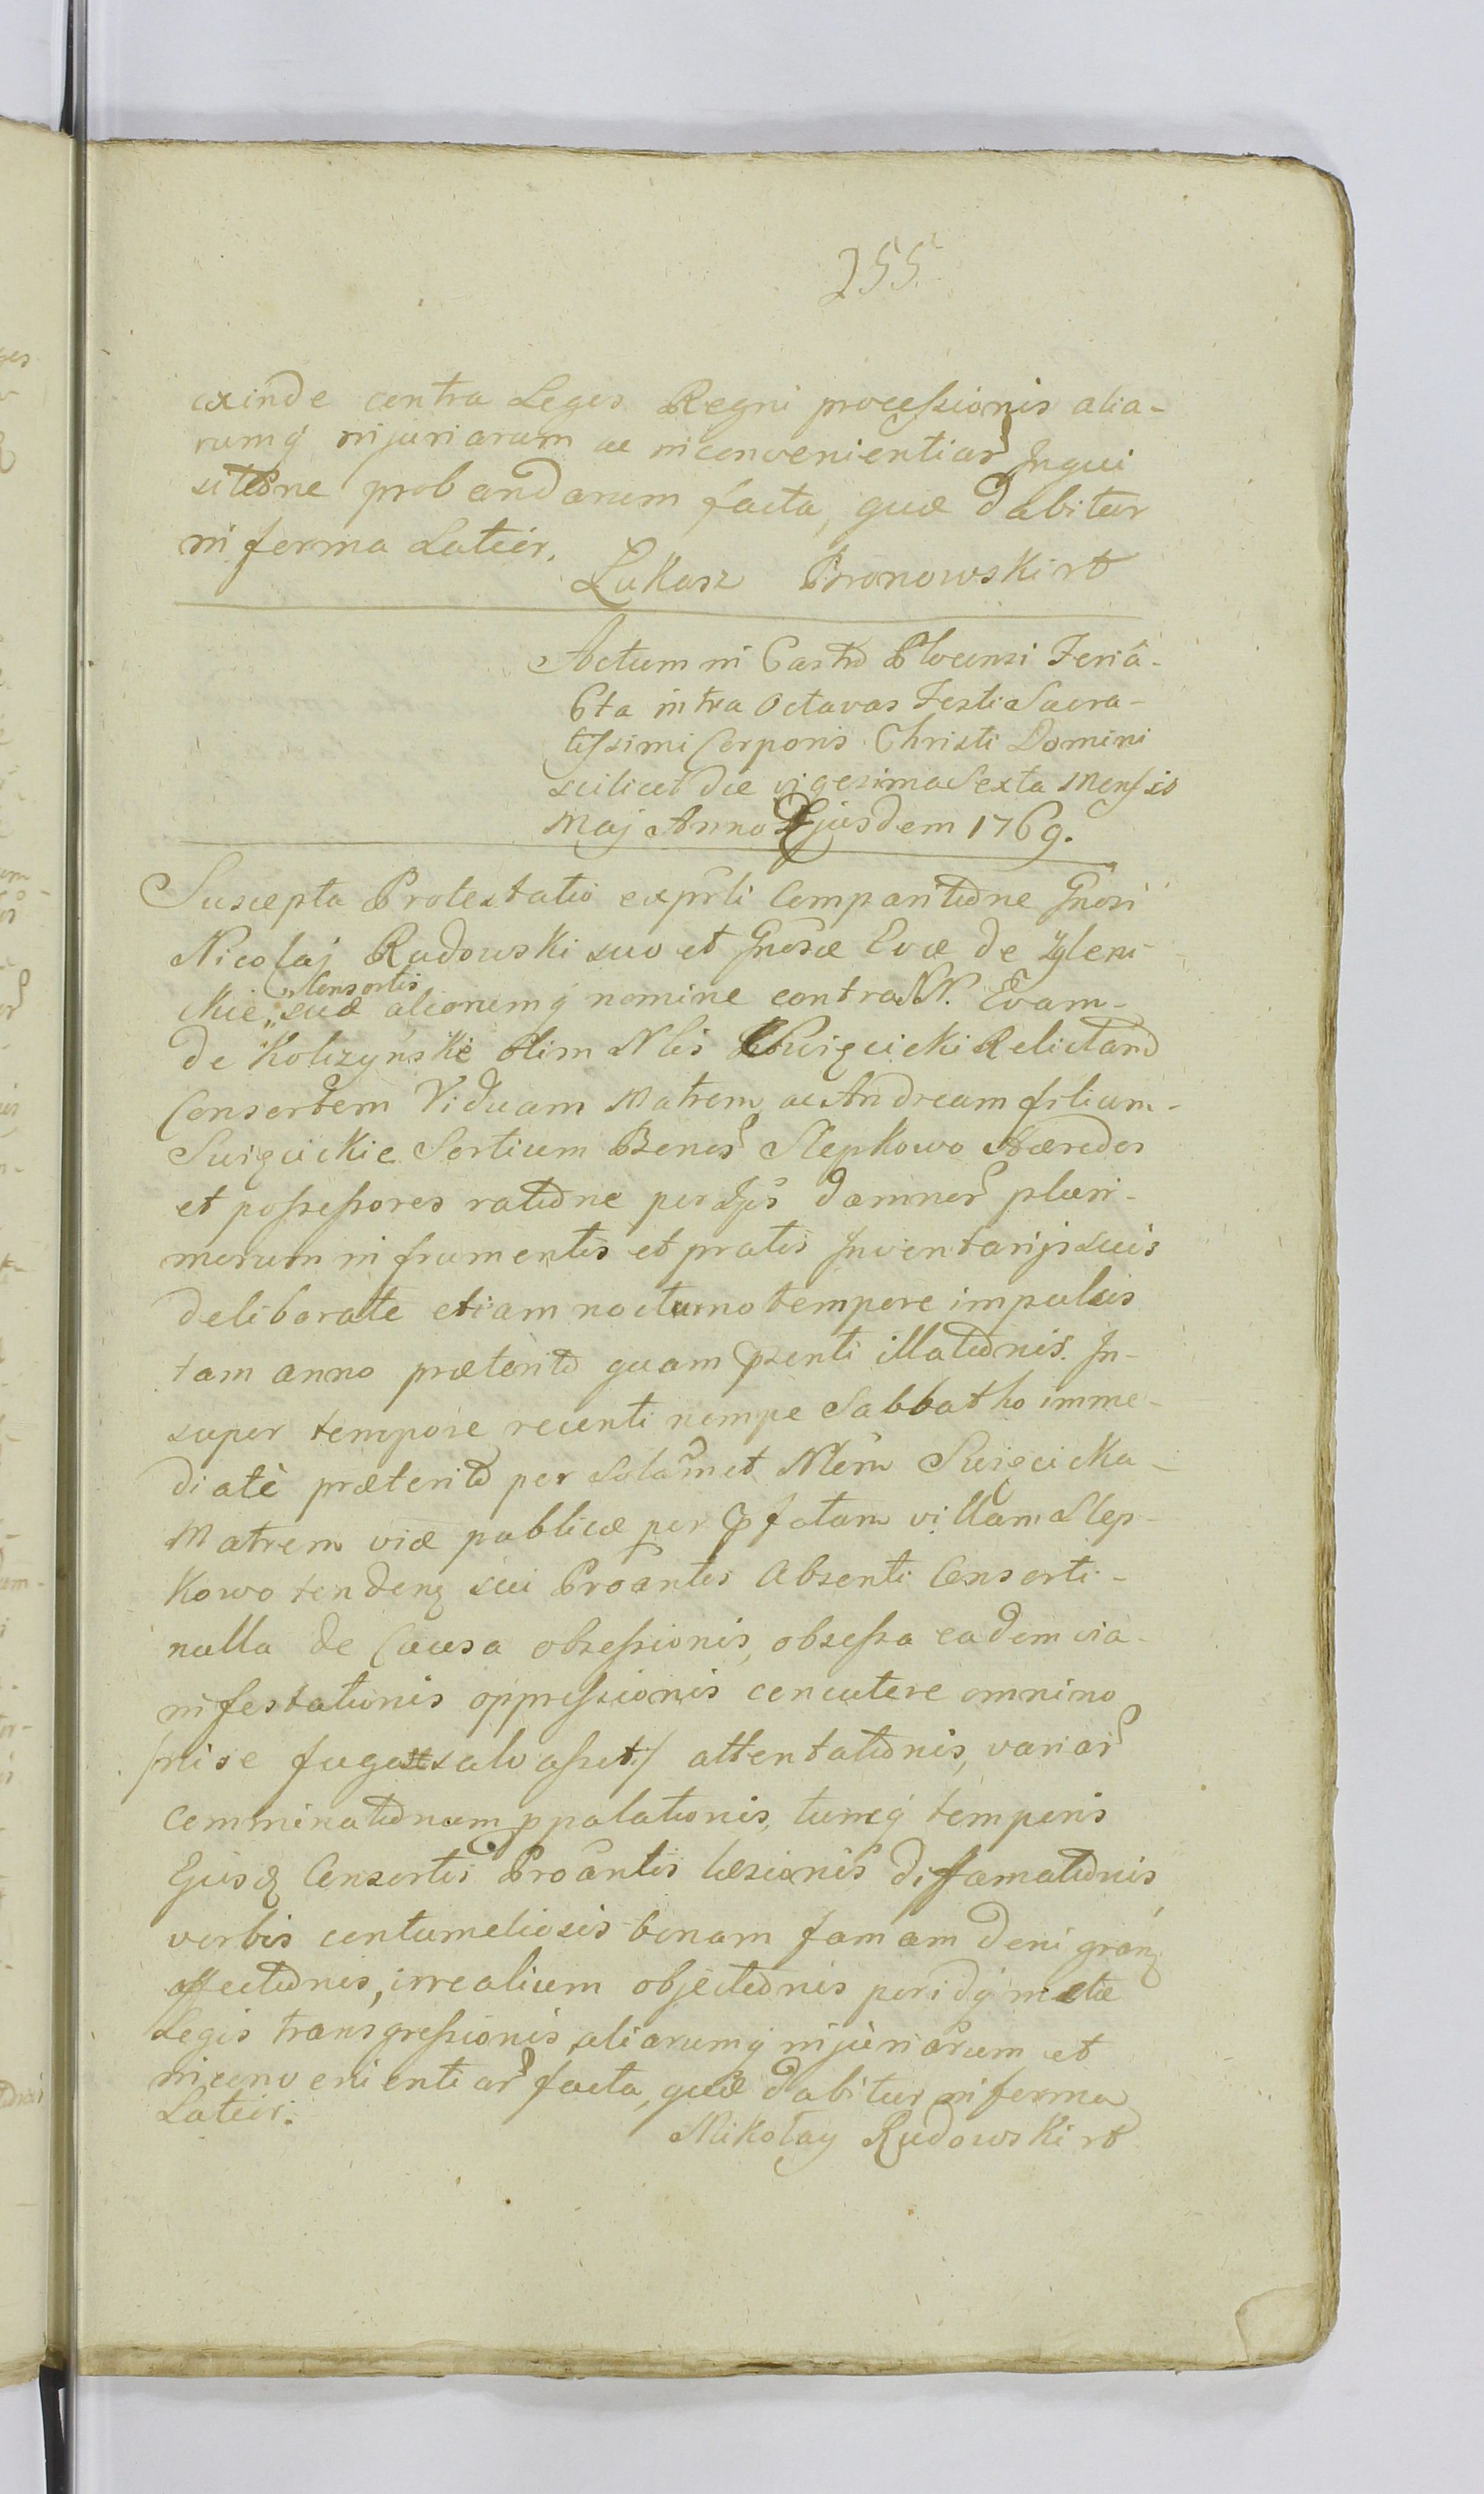 255.
exinde contra Leges Regni processionis alia-
rumq injuriarum ac inconvenientiar Inqui
sitione probandarum facta, quæ dabitur
in forma Latior.
Łukasz Bronowski rt
Actum in Castro Plocensi Feria
6ta intra Octavas Festi Sacra-
tissimi Corporis Christi Domini
scilicet die vigesima Sexta Mensis
Maj Anno Ejusdem 1769.
Suscepta Protestatio exprli Comparitione Gnosi
Nicolaj Rudowski suo et Gnosæ Evæ de
Consortis
suæ aliorumq nomine contra NN. Evam
de Kolczyńskie olim Nlis Swięcicki Relictam
Consortem Viduam Matrem ac Andream filium
Swięcickie Sortium Bonor Slepkowo Hæredes
et possessores ratione per Ipos damnor pluri-
morum in frumentis et pratis Inventarijs suis
deliberate etiam nocturno tempore impulsis
tam anno præterito quam pzenti illationis. In-
super tempore recenti nempe Sabbatho imme-
diate præterito per Solamet Nlem Swięcicka
Matrem viæ publicæ per pfatam villam Slep-
kowo tendenz sui Proantis Absenti Consorti
nulla de Causa obsessionis, obsessa eadem via
infestationis oppressionis concutere omnino
/nise fuga salvasset/ attentationis, variar
Comminationum ppalationis, tumq temporis
Ejusq Consortis Proantis læsionis diffamationis
verbis contumeliosis bonam famam denigranz
affectionis, irrealium objectionis peridq metæ
Legis transgressionis aliarumq injuriarum et
inconvenientiar facta, quæ dabitur in forma
Latior.
Mikołay Rudowski rt